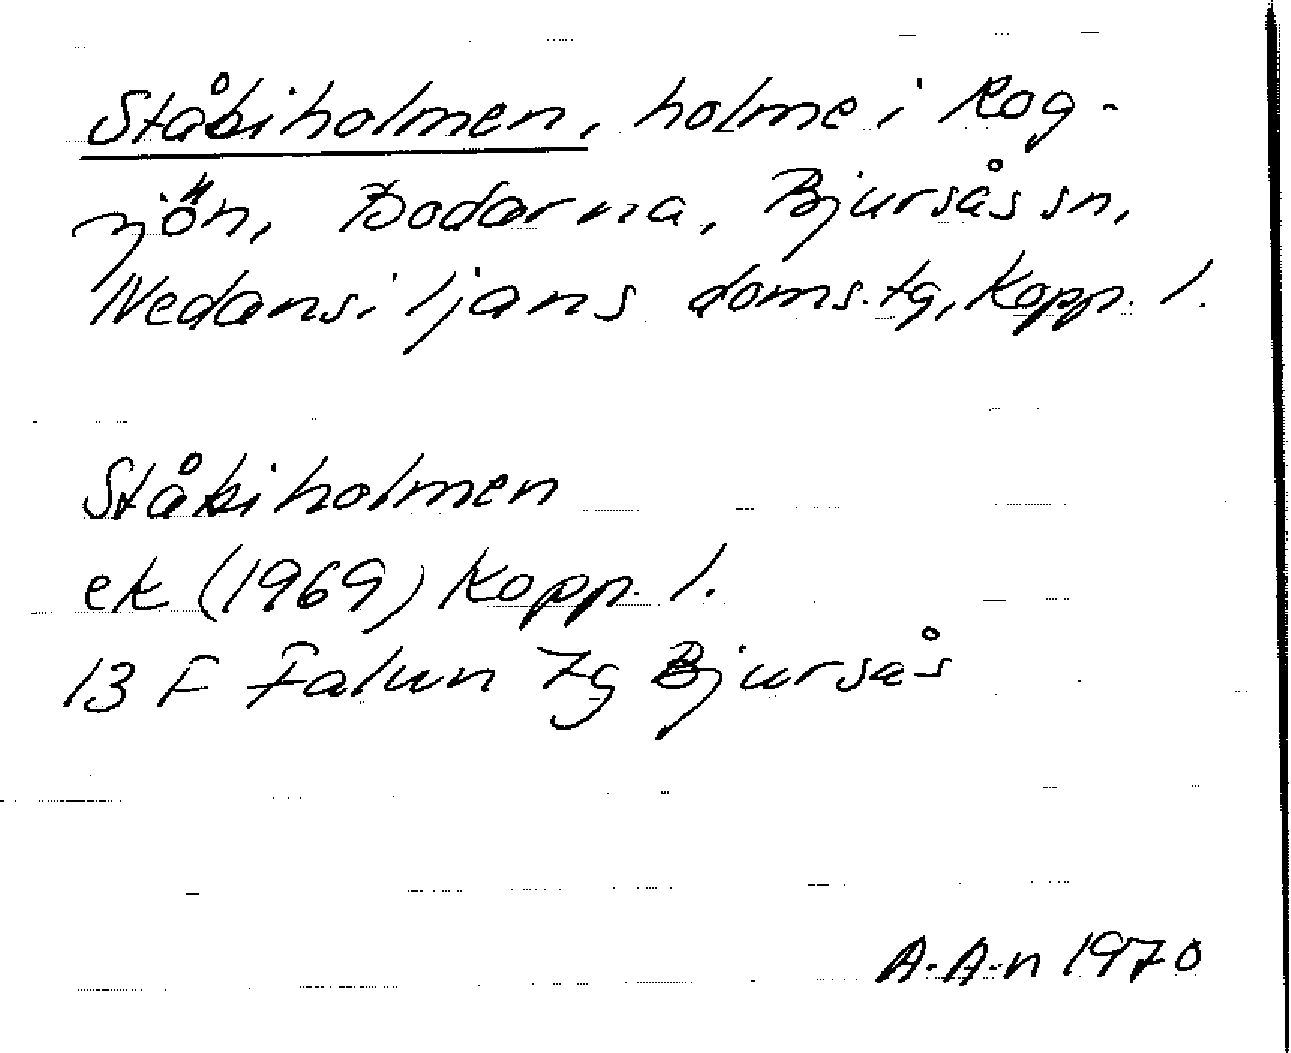 Ståbiholmen, holme i Rog-
sjön, Bodarna, Bjursås sn,
Nedansiljans doms.tg, Kopp. l.
Ståbiholmen
ek (1969) Kopp. l.
13 F Falun 7g Bjursås
A.A-n 1970